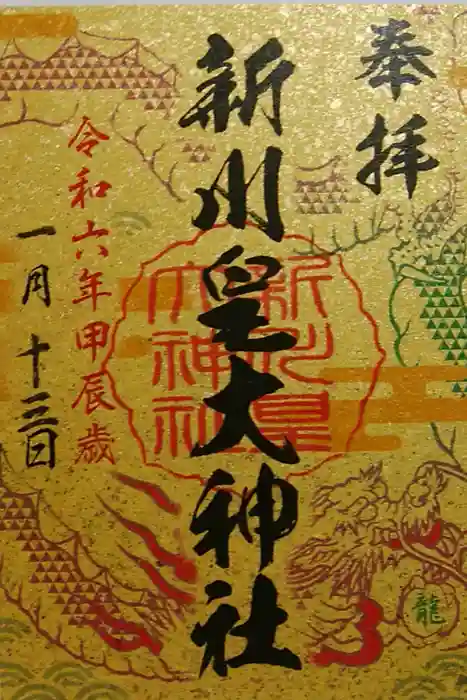 奉拝
新川皇大神社
新川皇大神社
令和六年甲辰歳
一月十三日
龍